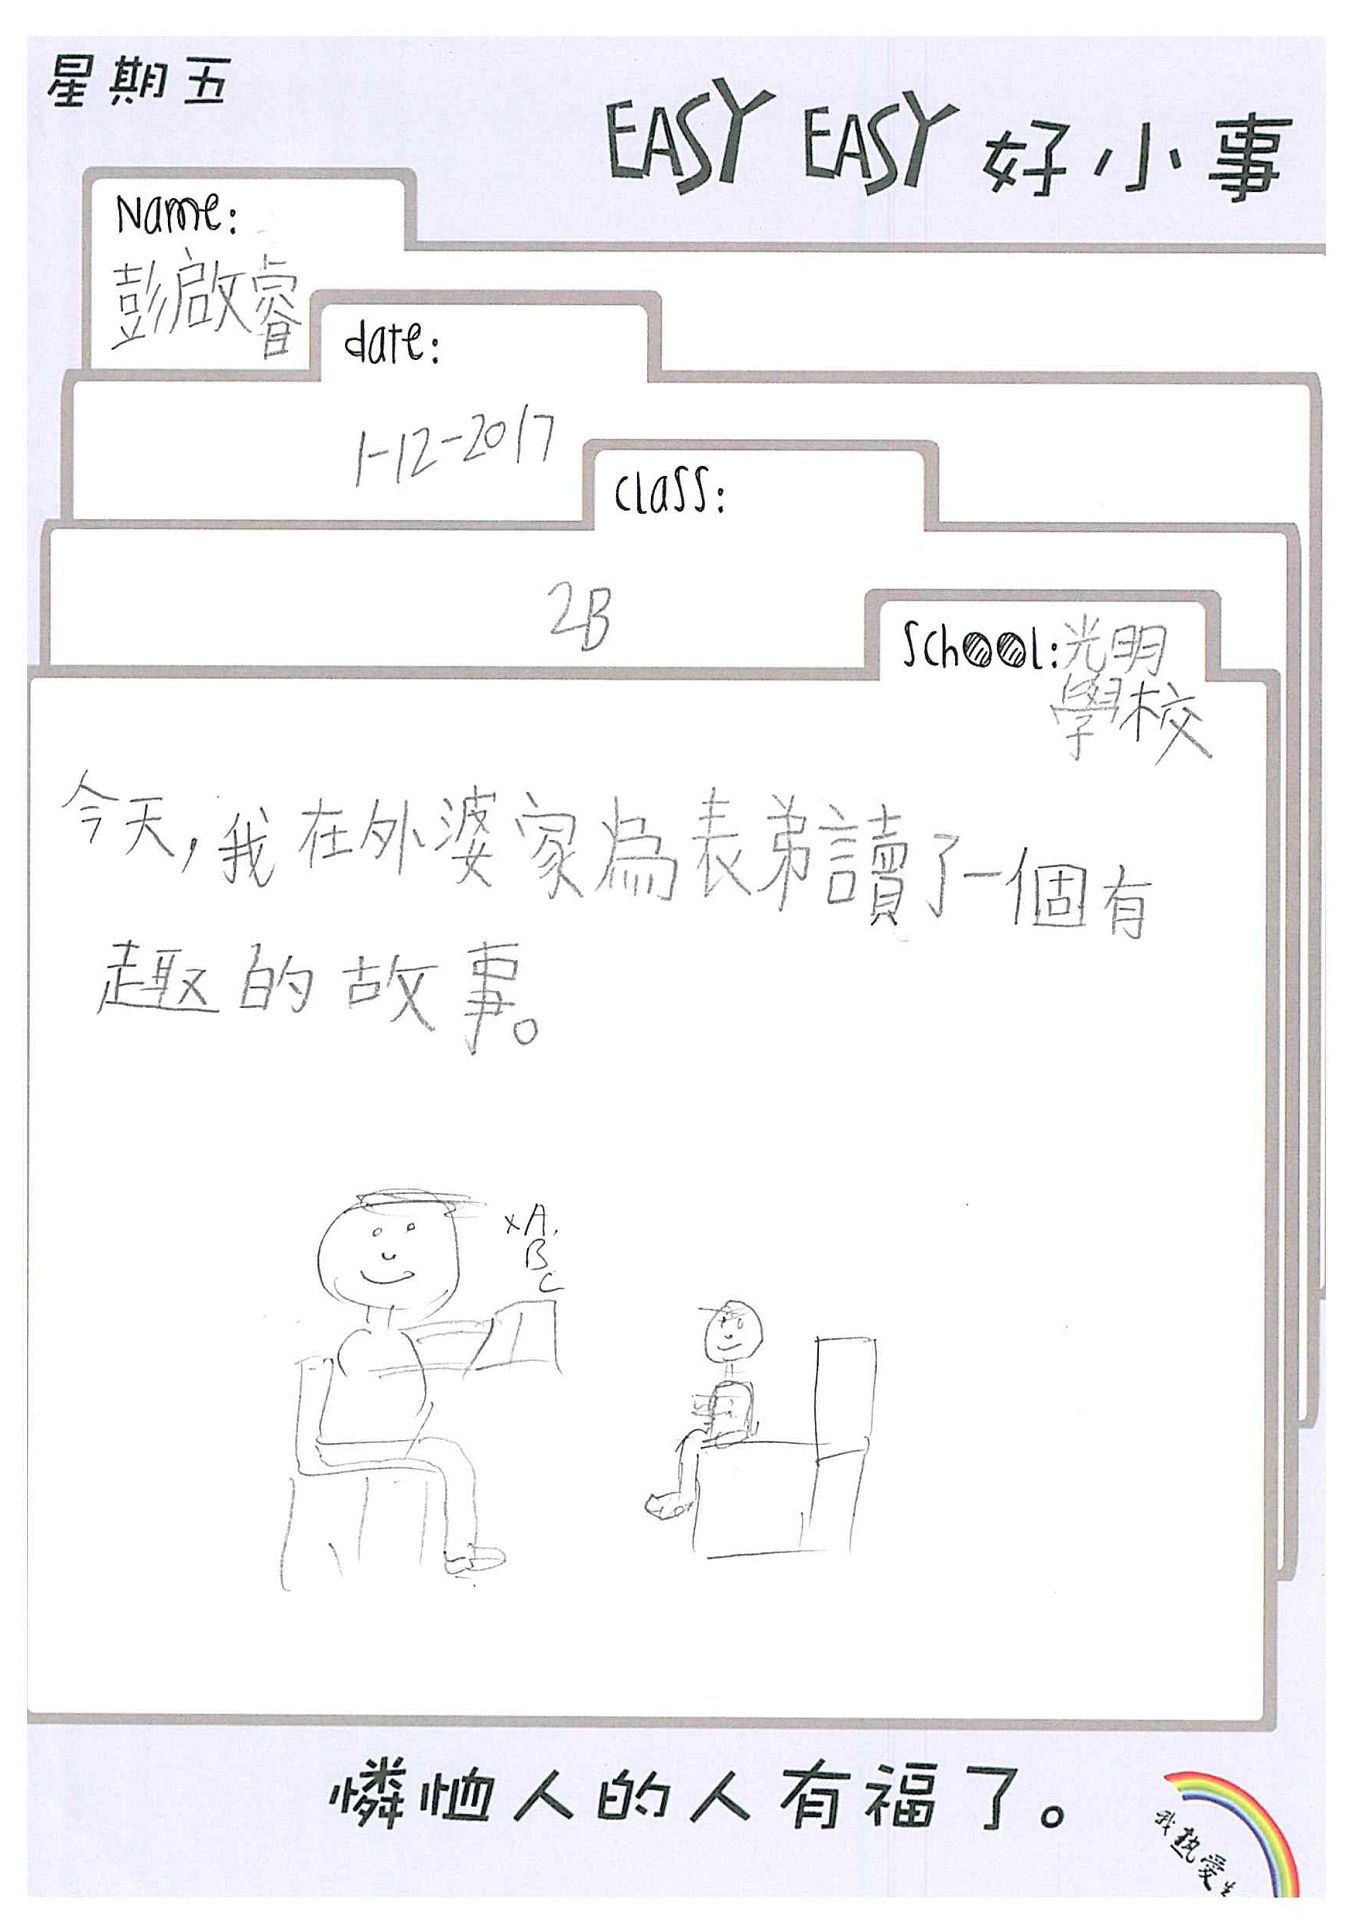 星期五
EASY EASY 好小事
Name:
彭啟睿
date:
1-12-2017
class:
2B
School:光明
學校
今天,我在外婆家為表弟讀了一個有
趣的故事。
xA.
B
C
憐恤人的人有福了。
我熱愛